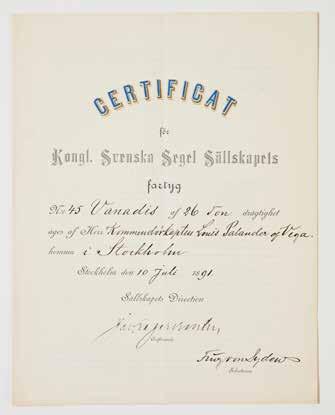 CERTIFICAT
för
Kongl. Svenska Segel Sällskapets
fartyg
No 45 Vanadis af 26 Ton drägtighet
äges af Herr Kommendörkapten Louis Palander af Vega
hemma i Stockholm
Stockholm den 10 juli 1891.
Sällskapets Direction
Ordförande
Fring von Sydow
Sekreterare